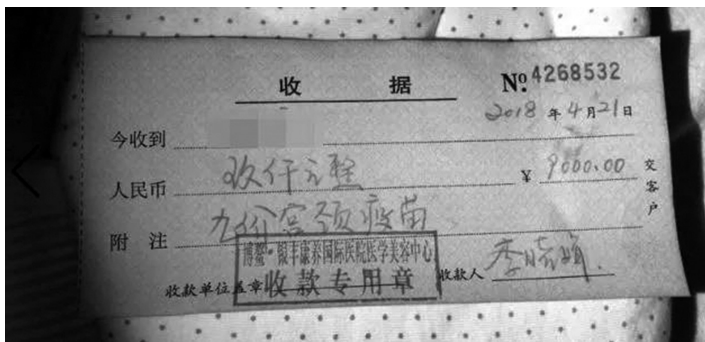 收 据 № 4268532
2018 年 4 月 21 日
今收到
人民币 玖仟元整 ¥ 9000.00
附 注 九价宫颈疫苗
博鳌·银丰康养国际医院医学美容中心
收款单位盖章 收款专用章 收款人 李晓
交客户